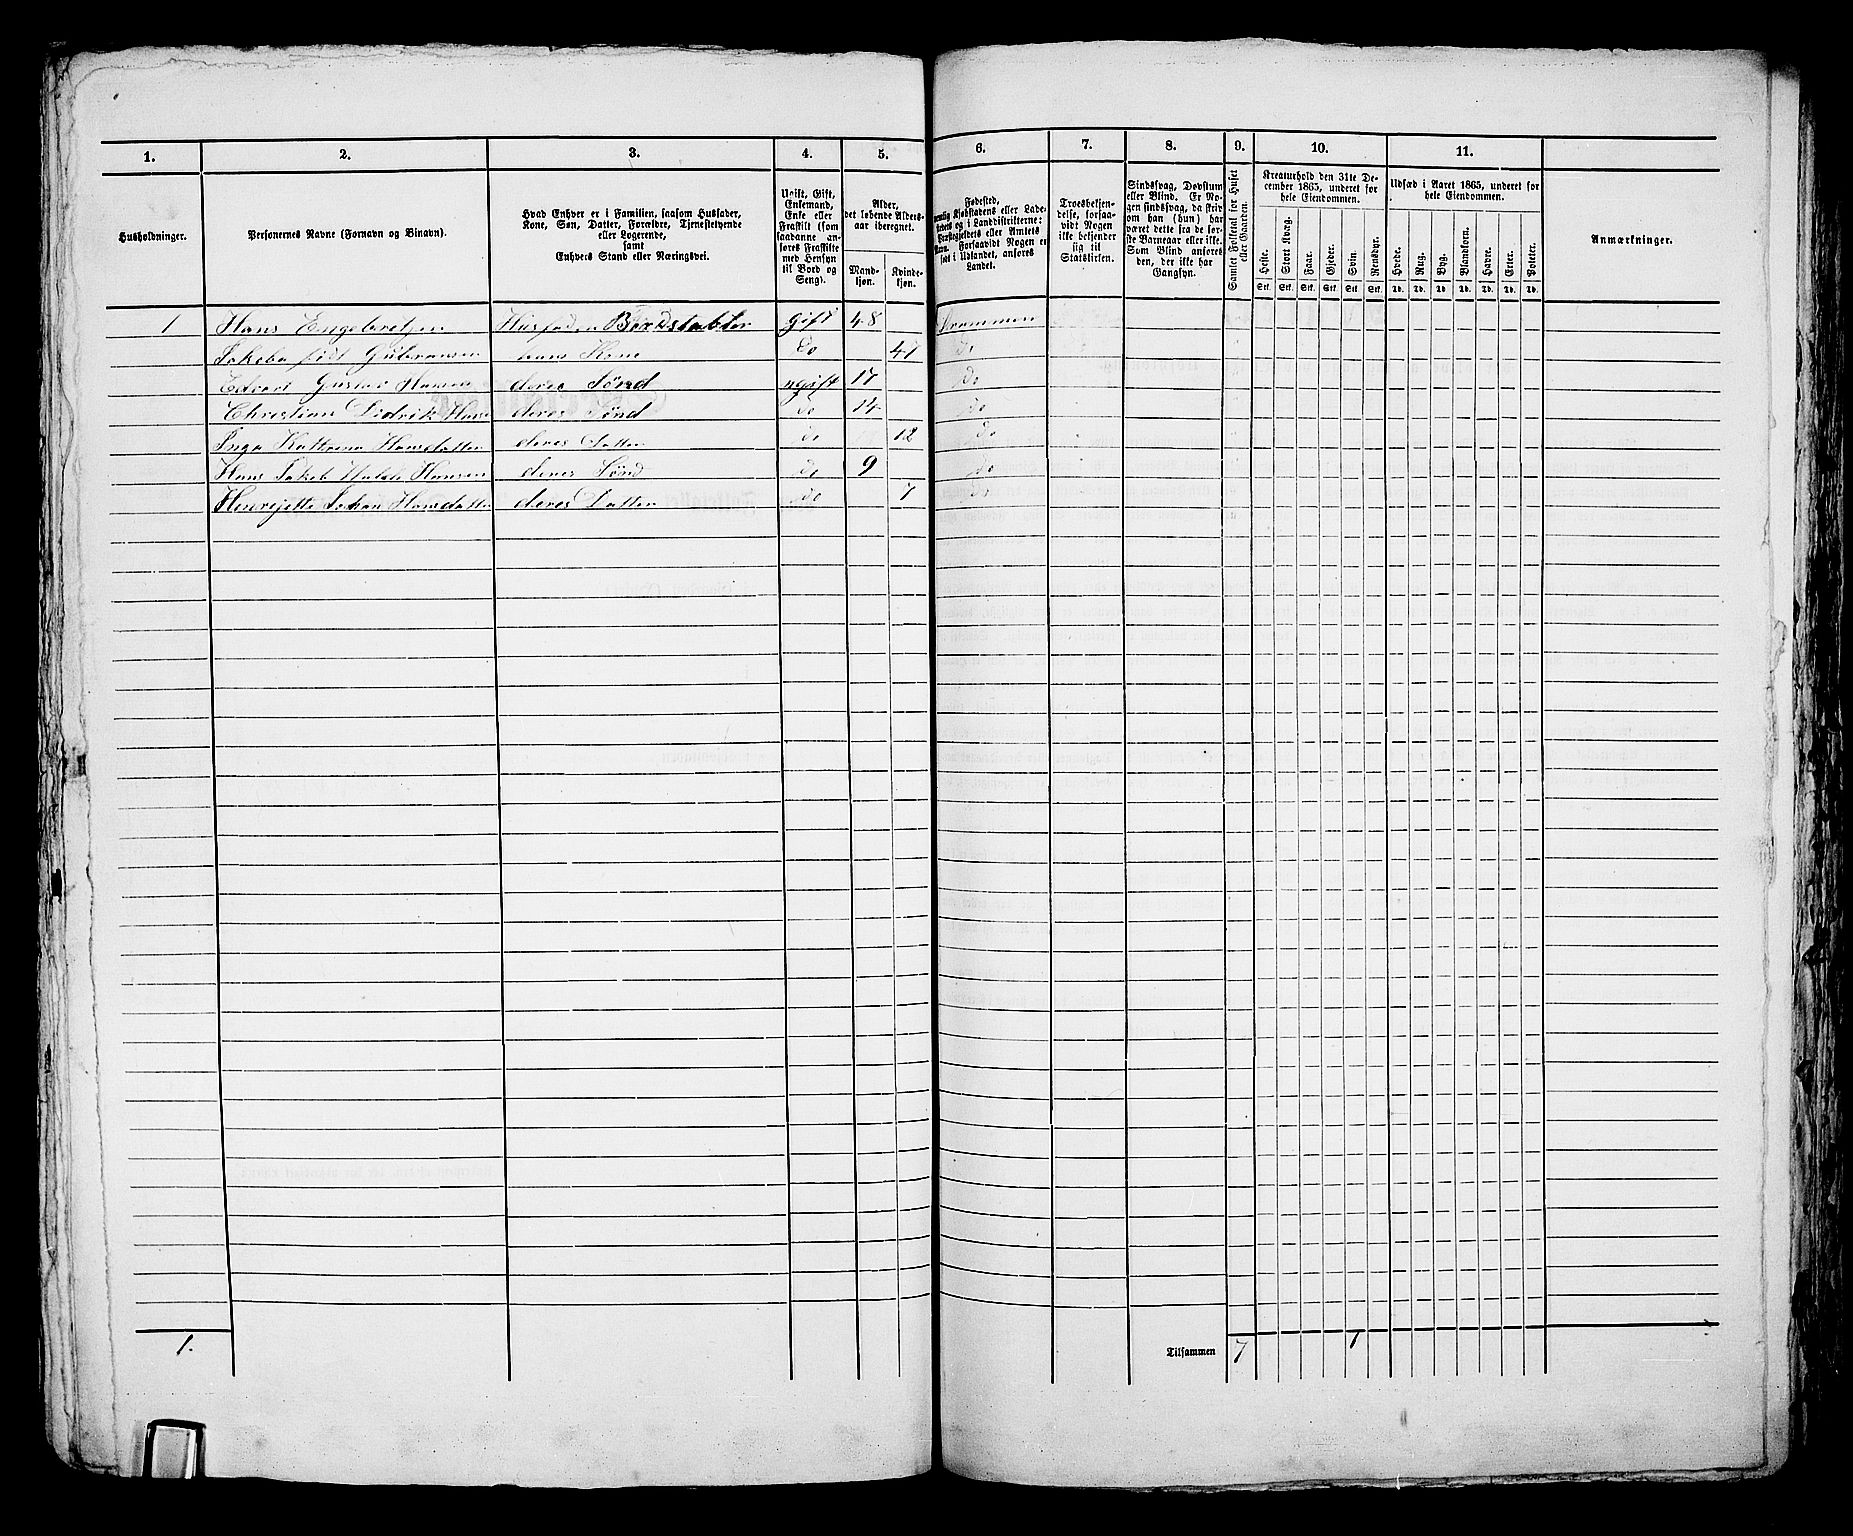 1. 2. 3. 4. 5. 6. 7. 8. 9. 10. 11.
Husholdninger.
Personernes Navne (Fornavn og Binavn).
Hvad Enhver er i Familien, saasom Husfader,
Kone, Søn, Datter, Forældre, Tjenestetyende
eller Logerende,
samt
Enhvers Stand eller Næringsvei.
Ugift, Gift,
Enkemand,
Enke eller
Fraskilt (som
saadanne an-
føres Fraskilte
med Hensyn
til Bord og
Seng).
Alder,
det løbende Alders-
aar iberegnet.
Mand-
kjøn.
Kvinde-
kjøn.
Fødested,
nemlig Kjøbstadens eller Lade-
stedets og i Landdistrikterne:
Præstegjeldets eller Amtets
Navn. Forsaavidt Nogen er
født i Udlandet, anføres
Landet.
Troesbekjen-
delse, forsaa-
vidt Nogen
ikke bekjender
sig til
Statskirken.
Sindssvag, Døvstum
eller Blind. Er No-
gen sindssvag, da skriv
om han (hun) har
været dette fra de før-
ste Barneaar eller ikke.
Som Blind anføres
den, der ikke har
Gangsyn.
Samlet Folketal for Huset
eller Gaarden.
Kreaturhold den 31te De-
cember 1865, underet for
hele Eiendommen.
Heste. Stort Kvæg. Faar. Gjeder. Sviin. Rensdyr.
Stk. Stk. Stk. Stk. Stk. Stk.
Udsæd i Aaret 1865, underet for
hele Eiendommen.
Hvede. Rug. Byg. Blandkorn. Havre. Erter. Poteter.
Td. Td. Td. Td. Td. Td. Td.
Anmærkninger.
1 Hans Engebretsen Husfader Gift 48 Drammen
Jakoba født Gubransen hans Kone Do 47 Do
Edvart Gustav Hansen deres Sønd ugift 17 Do
Christian Didrik Hans deres Sønd Do 14 Do
Inga Hansdatter deres Datter Do 12 Do
Hans Jakob Hansen deres Sønd Do 9 Do
Henrejette Johan Hansdatter deres Datter Do 7 Do
1. Tilsammen 7 1